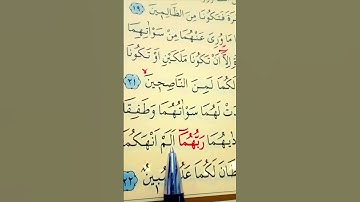 رَةَ فَتَكُونَا مِنَ الظَّالِمِينَ ﴿١٩﴾
مَا وُرِيَ عَنْهُمَا مِنْ سَوْاٰتِهِمَا
ةِ اِلَّٓا اَنْ تَكُونَا مَلَكَيْنِ اَوْ تَكُونَا
لَكُمَا لَمِنَ النَّاصِحِينَ ﴿٢١﴾
دَتْ لَهُمَا سَوْاٰتُهُمَا وَطَفِقَا
دٰيهُمَا رَبُّهُمَٓا اَلَمْ اَنْهَكُمَا
طَانَ لَكُمَا مُبِينٌ ﴿٢٢﴾